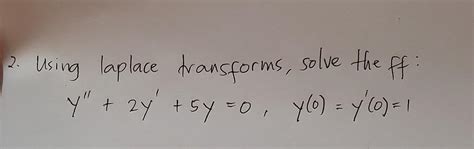 2. Using laplace transforms, solve the ff:
y" + 2y' + 5y = 0, y(0) = y'(0) = 1